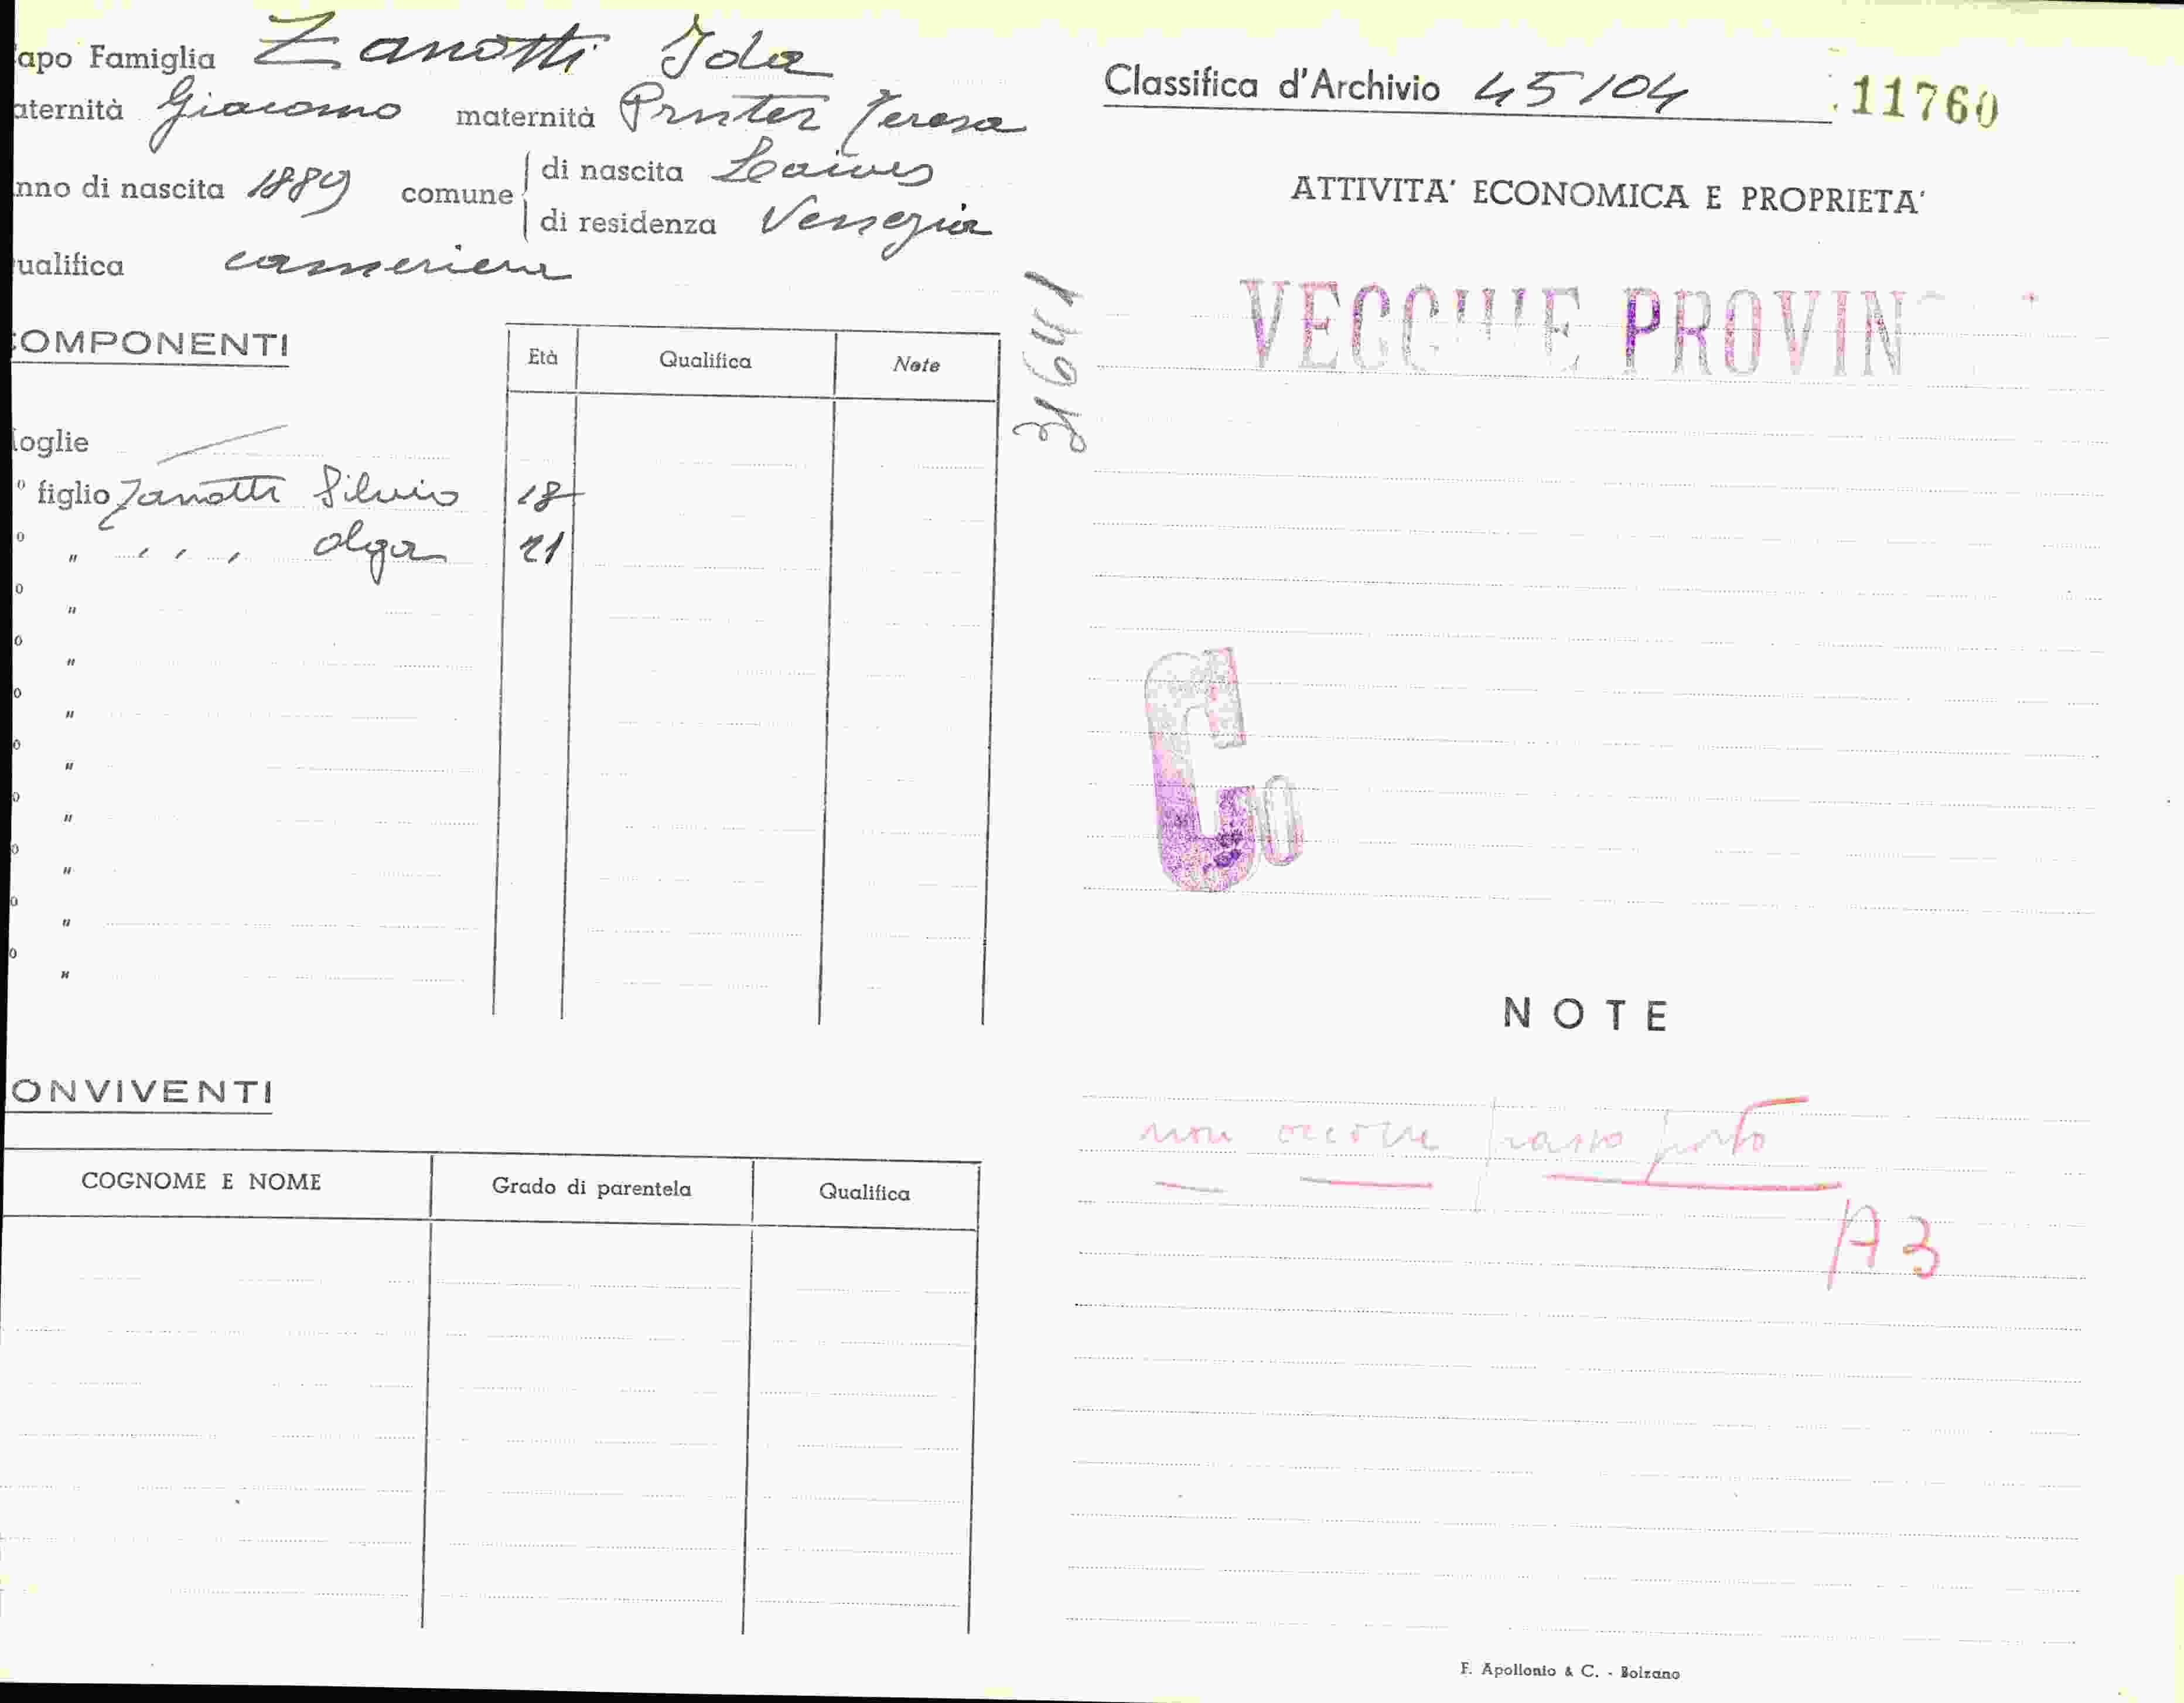 apo Famiglia Zanotti Ida
aternità Giacomo maternità Teresa
nno di nascita 1889 comune di nascita Laives
di residenza Venezia
ualifica cameriera
OMPONENTI
Età Qualifica Note
oglie
º figlio Zanotti Silvio 18
º " , , , Olga 21
º "
º "
º "
º "
º "
º "
º "
º "
ONVIVENTI
COGNOME E NOME Grado di parentela Qualifica
31641
Classifica d'Archivio 45104 11760
ATTIVITA' ECONOMICA E PROPRIETA'
VECCHIE PROVIN
G0
NOTE
non occorre passaporto
A3
F. Apollonio & C. - Bolzano